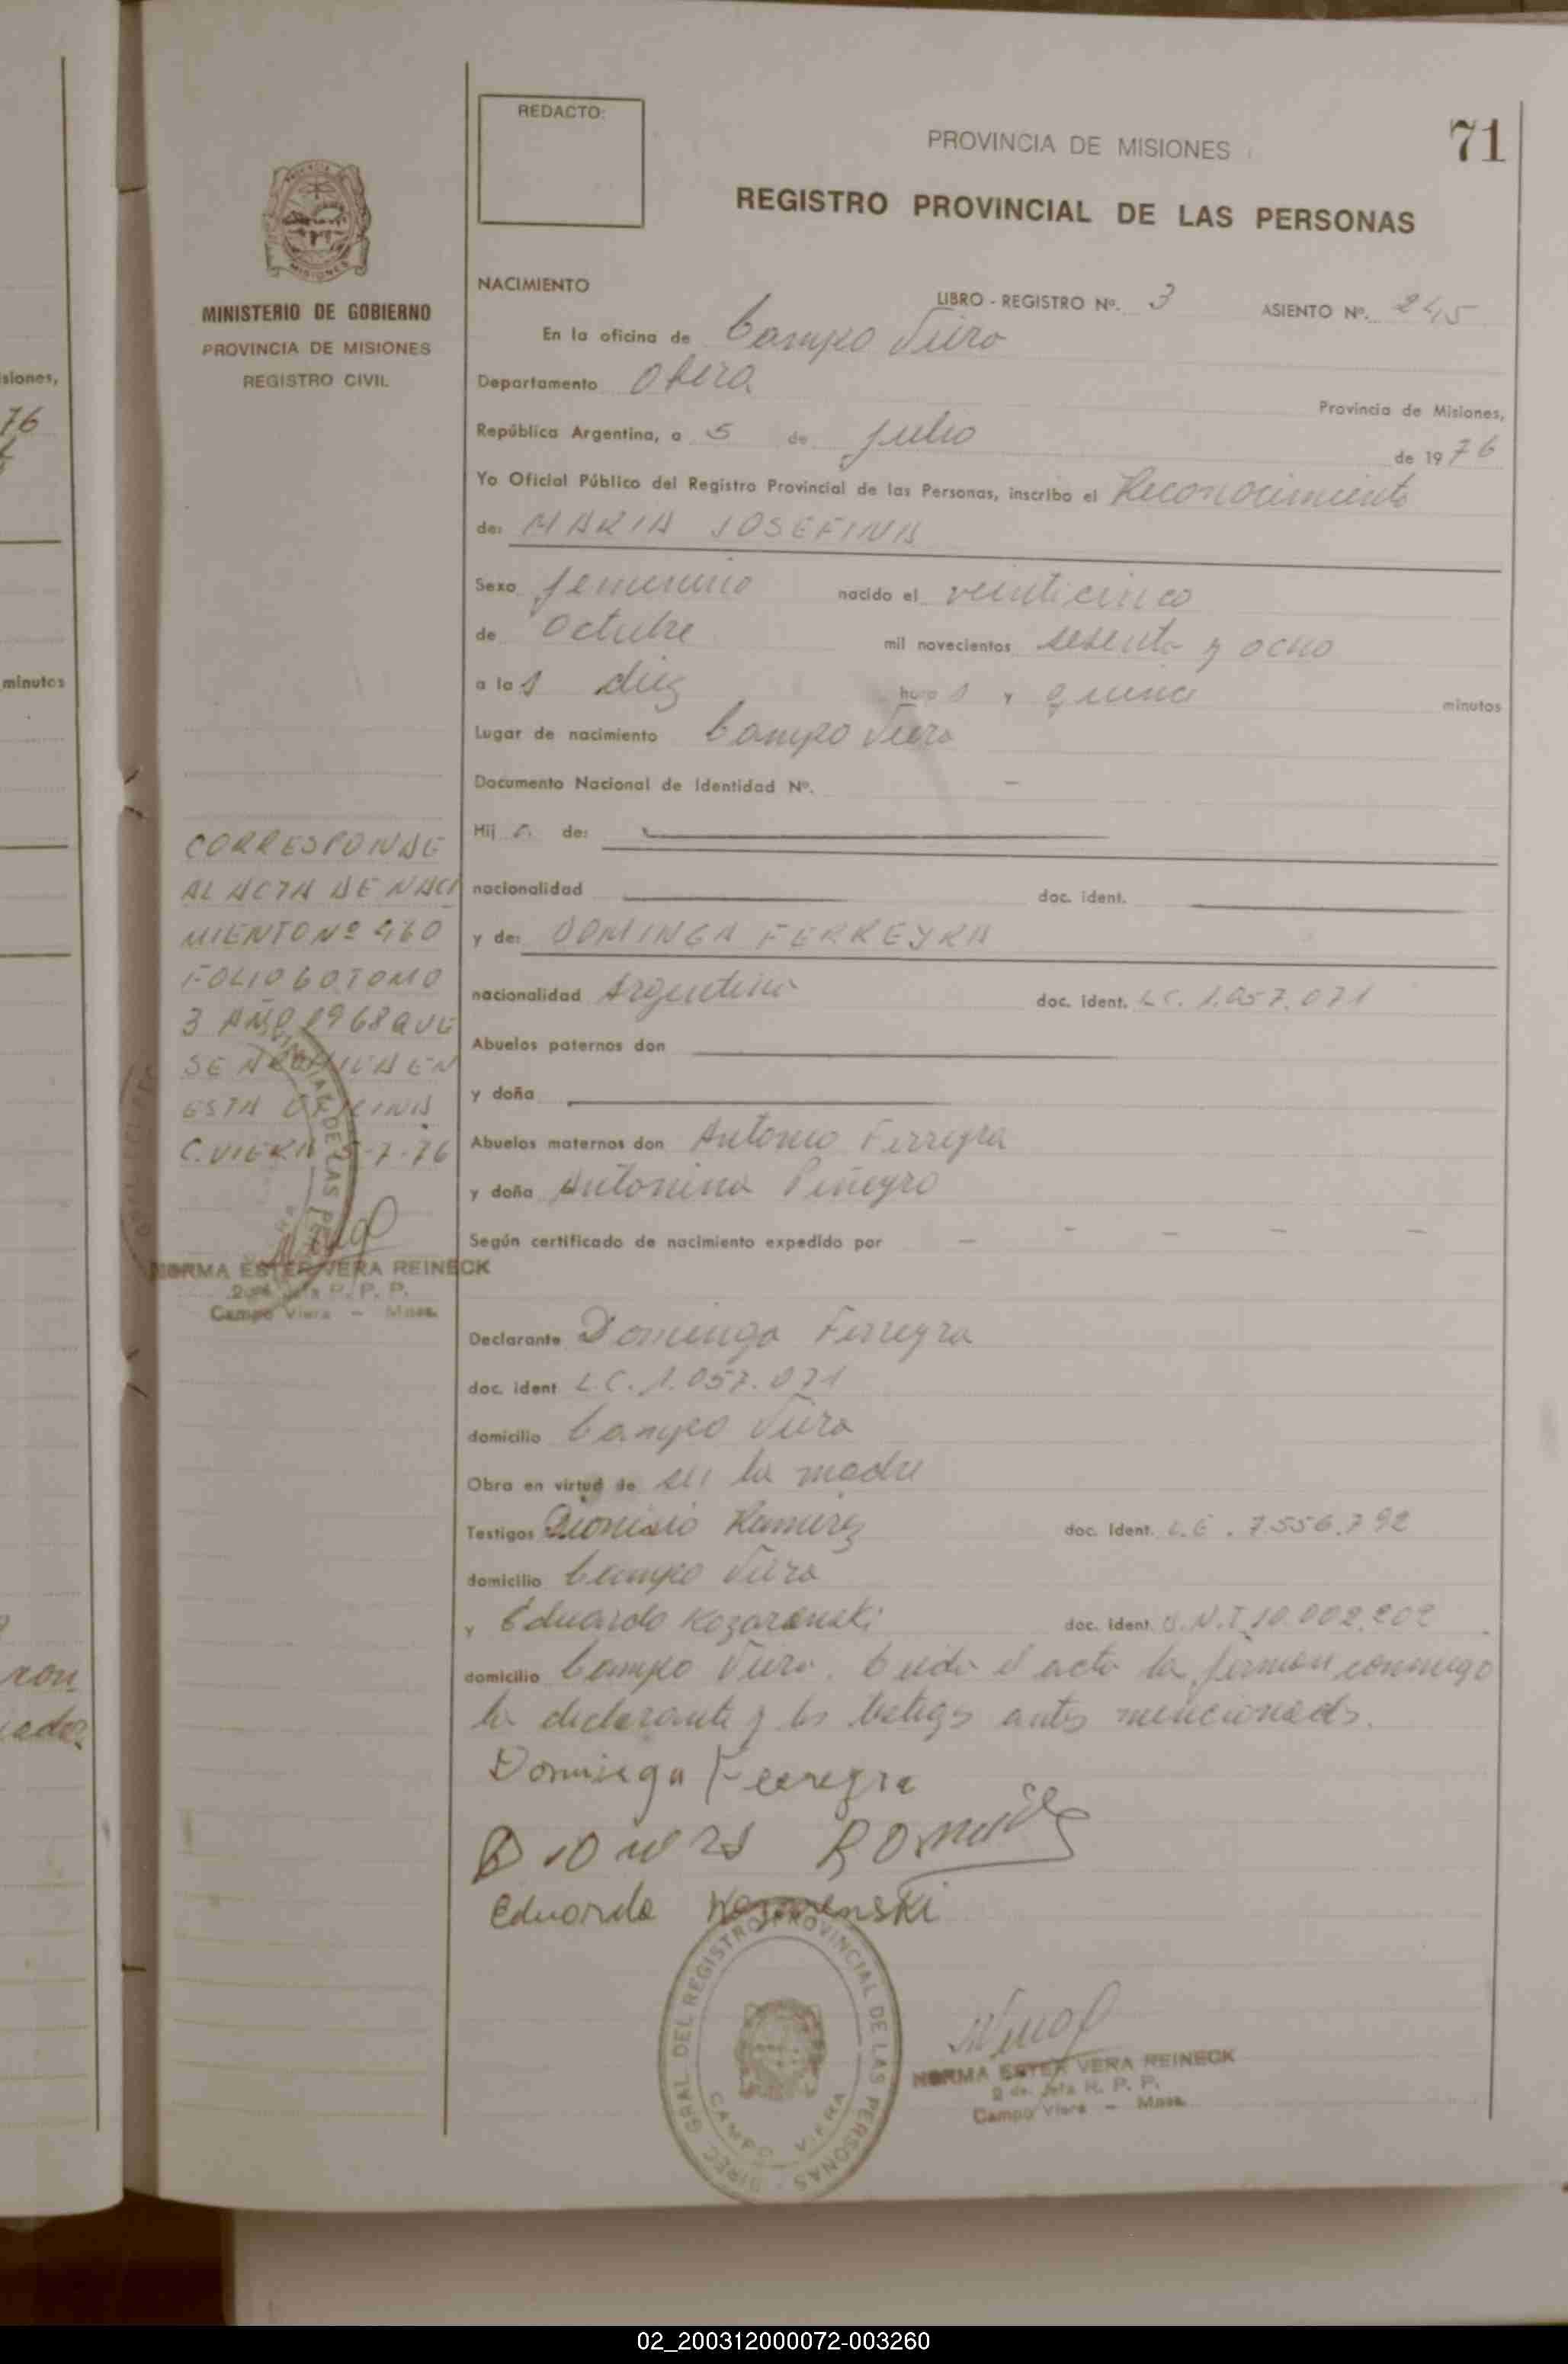 REDACTO:
71
PROVINCIA DE MISIONES
REGISTRO PROVINCIAL DE LAS PERSONAS
MINISTERIO DE GOBIERNO
PROVINCIA DE MISIONES
REGISTRO CIVIL
NACIMIENTO LIBRO - REGISTRO Nº. 3 ASIENTO Nº. 245
En la oficina de Campo Viera
Departamento Oberá
Provincia de Misiones,
República Argentina, a 5 de julio de 1976
Yo Oficial Público del Registro Provincial de las Personas, inscribo el Reconocimiento
de: MARIA JOSEFINA
Sexo femenino nacido el veinticinco
de Octubre mil novecientos sesenta y ocho
a las diez horas y quince minutos
Lugar de nacimiento Campo Viera
Documento Nacional de Identidad Nº. —
Hija de:
nacionalidad doc. ident.
y de: DOMINGA FERREYRA
nacionalidad Argentina doc. ident. L.C. 1.057.071
Abuelos paternos don
y doña
Abuelos maternos don Antonio Ferreyra
y doña Antonina Piñeyro
Según certificado de nacimiento expedido por — — — — —
Declarante Dominga Ferreyra
doc. ident L.C. 1.057.071
domicilio Campo Viera
Obra en virtud de ser la madre
Testigos Dionisio Ramirez doc. Ident. L.E. 7.556.792
domicilio Campo Viera
y Eduardo Kozarenski doc. ident. D.N.I 10.002.202
domicilio Campo Viera. Leida el acta la firman conmigo
la declarante y los testigos antes mencionados.
Dominga Ferreyra
Eduardo Kozarenski
CORRESPONDE
AL ACTA DE NACI
MIENTO Nº 460
FOLIO 60 TOMO
3 AÑO 1968 QUE
SE ARCHIVA EN
ESTA OFICINA
C. VIERA 5-7-76
NORMA ESTER VERA REINECK
Campo Viera — Mnes.
DIREC. GRAL. DEL REGISTRO PROVINCIAL DE LAS PERSONAS
CAMPO VIERA
NORMA ESTER VERA REINECK
2 da. Jefa R. P. P.
Campo Viera — Mnes.
siones,
76
minutos
ron
02_200312000072-003260